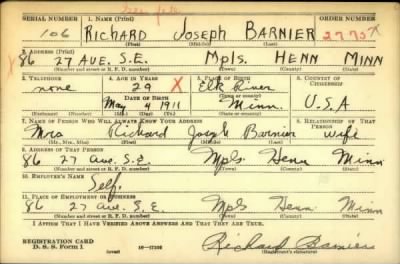 SERIAL NUMBER 1. NAME (Print)
106 RICHARD JOSEPH BARNIER 2775
(First) (Middle) (Last)
2. ADDRESS (Print)
86 27 AVE. S.E. MPLS. HENN MINN
(Number and street or R. F. D. number) (Town) (County) (State)
3. TELEPHONE 4. AGE IN YEARS 5. PLACE OF BIRTH 6. COUNTRY OF CITIZENSHIP
none 29 X Elk River
DATE OF BIRTH (Town or county)
May 4 1911 Minn. U.S.A
(Mo.) (Day) (Yr.) (State or country)
7. NAME OF PERSON WHO WILL ALWAYS KNOW YOUR ADDRESS 8. RELATIONSHIP OF THAT PERSON
Mrs Richard Joseph Barnier wife
(Mr., Mrs., Miss) (First) (Middle) (Last)
9. ADDRESS OF THAT PERSON
86 27 Ave. S.E. Mpls Henn Minn
(Number and street or R. F. D. number) (Town) (County) (State)
10. EMPLOYER'S NAME
Self.
11. PLACE OF EMPLOYMENT OR BUSINESS
86 27 Ave. S. E. Mpls Henn. Minn
(Number and street or R. F. D. number) (Town) (County) (State)
I AFFIRM THAT I HAVE VERIFIED ABOVE ANSWERS AND THAT THEY ARE TRUE.
REGISTRATION CARD
D. S. S. Form 1 16-17105 Richard Barnier